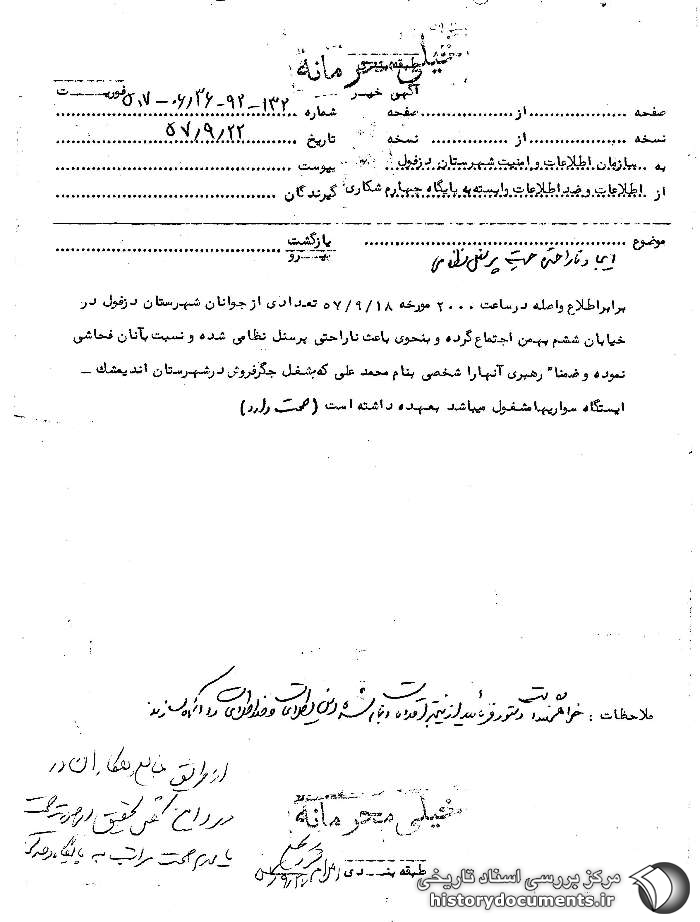 خیلی محرمانه
طبقه بندی
آگهی خبر
صفحه ........ از ........ صفحه شماره ۱۳۲-۹۲-۳۶/۰۶-۵۰۷ فوریت
نسخه ........ از ........ نسخه تاریخ ۵۷/۹/۲۲
به سازمان اطلاعات و امنیت شهرستان دزفول پیوست
از اطلاعات و ضد اطلاعات وابسته به پایگاه چهارم شکاری گیرندگان
موضوع ........ بازگشت
ایجاد ناراحتی جهت پرسنل نظامی پیرو
برابر اطلاع واصله در ساعت ۲۰۰۰ مورخه ۵۷/۹/۱۸ تعدادی از جوانان شهرستان دزفول در
خیابان ششم بهمن اجتماع گرده و بنحوی باعث ناراحتی پرسنل نظامی شده و نسبت بآنان فحاشی
نموده و ضمنا" رهبری آنها را شخصی بنام محمد علی که بشغل جگرفروش در شهرستان اندیمشک –
ایستگاه سواریها مشغول میباشد بعهده داشته است (صحت دارد)
ملاحظات : خواهشمند است دستور فرمائید از نتیجه اقدامات انجام شده این اطلاعات و ضد اطلاعات را آگاه سازند
از طریق همکاران در
تحقیق
خیلی محرمانه
طبقه بندی
مرکز بررسی اسناد تاریخی
historydocuments.ir